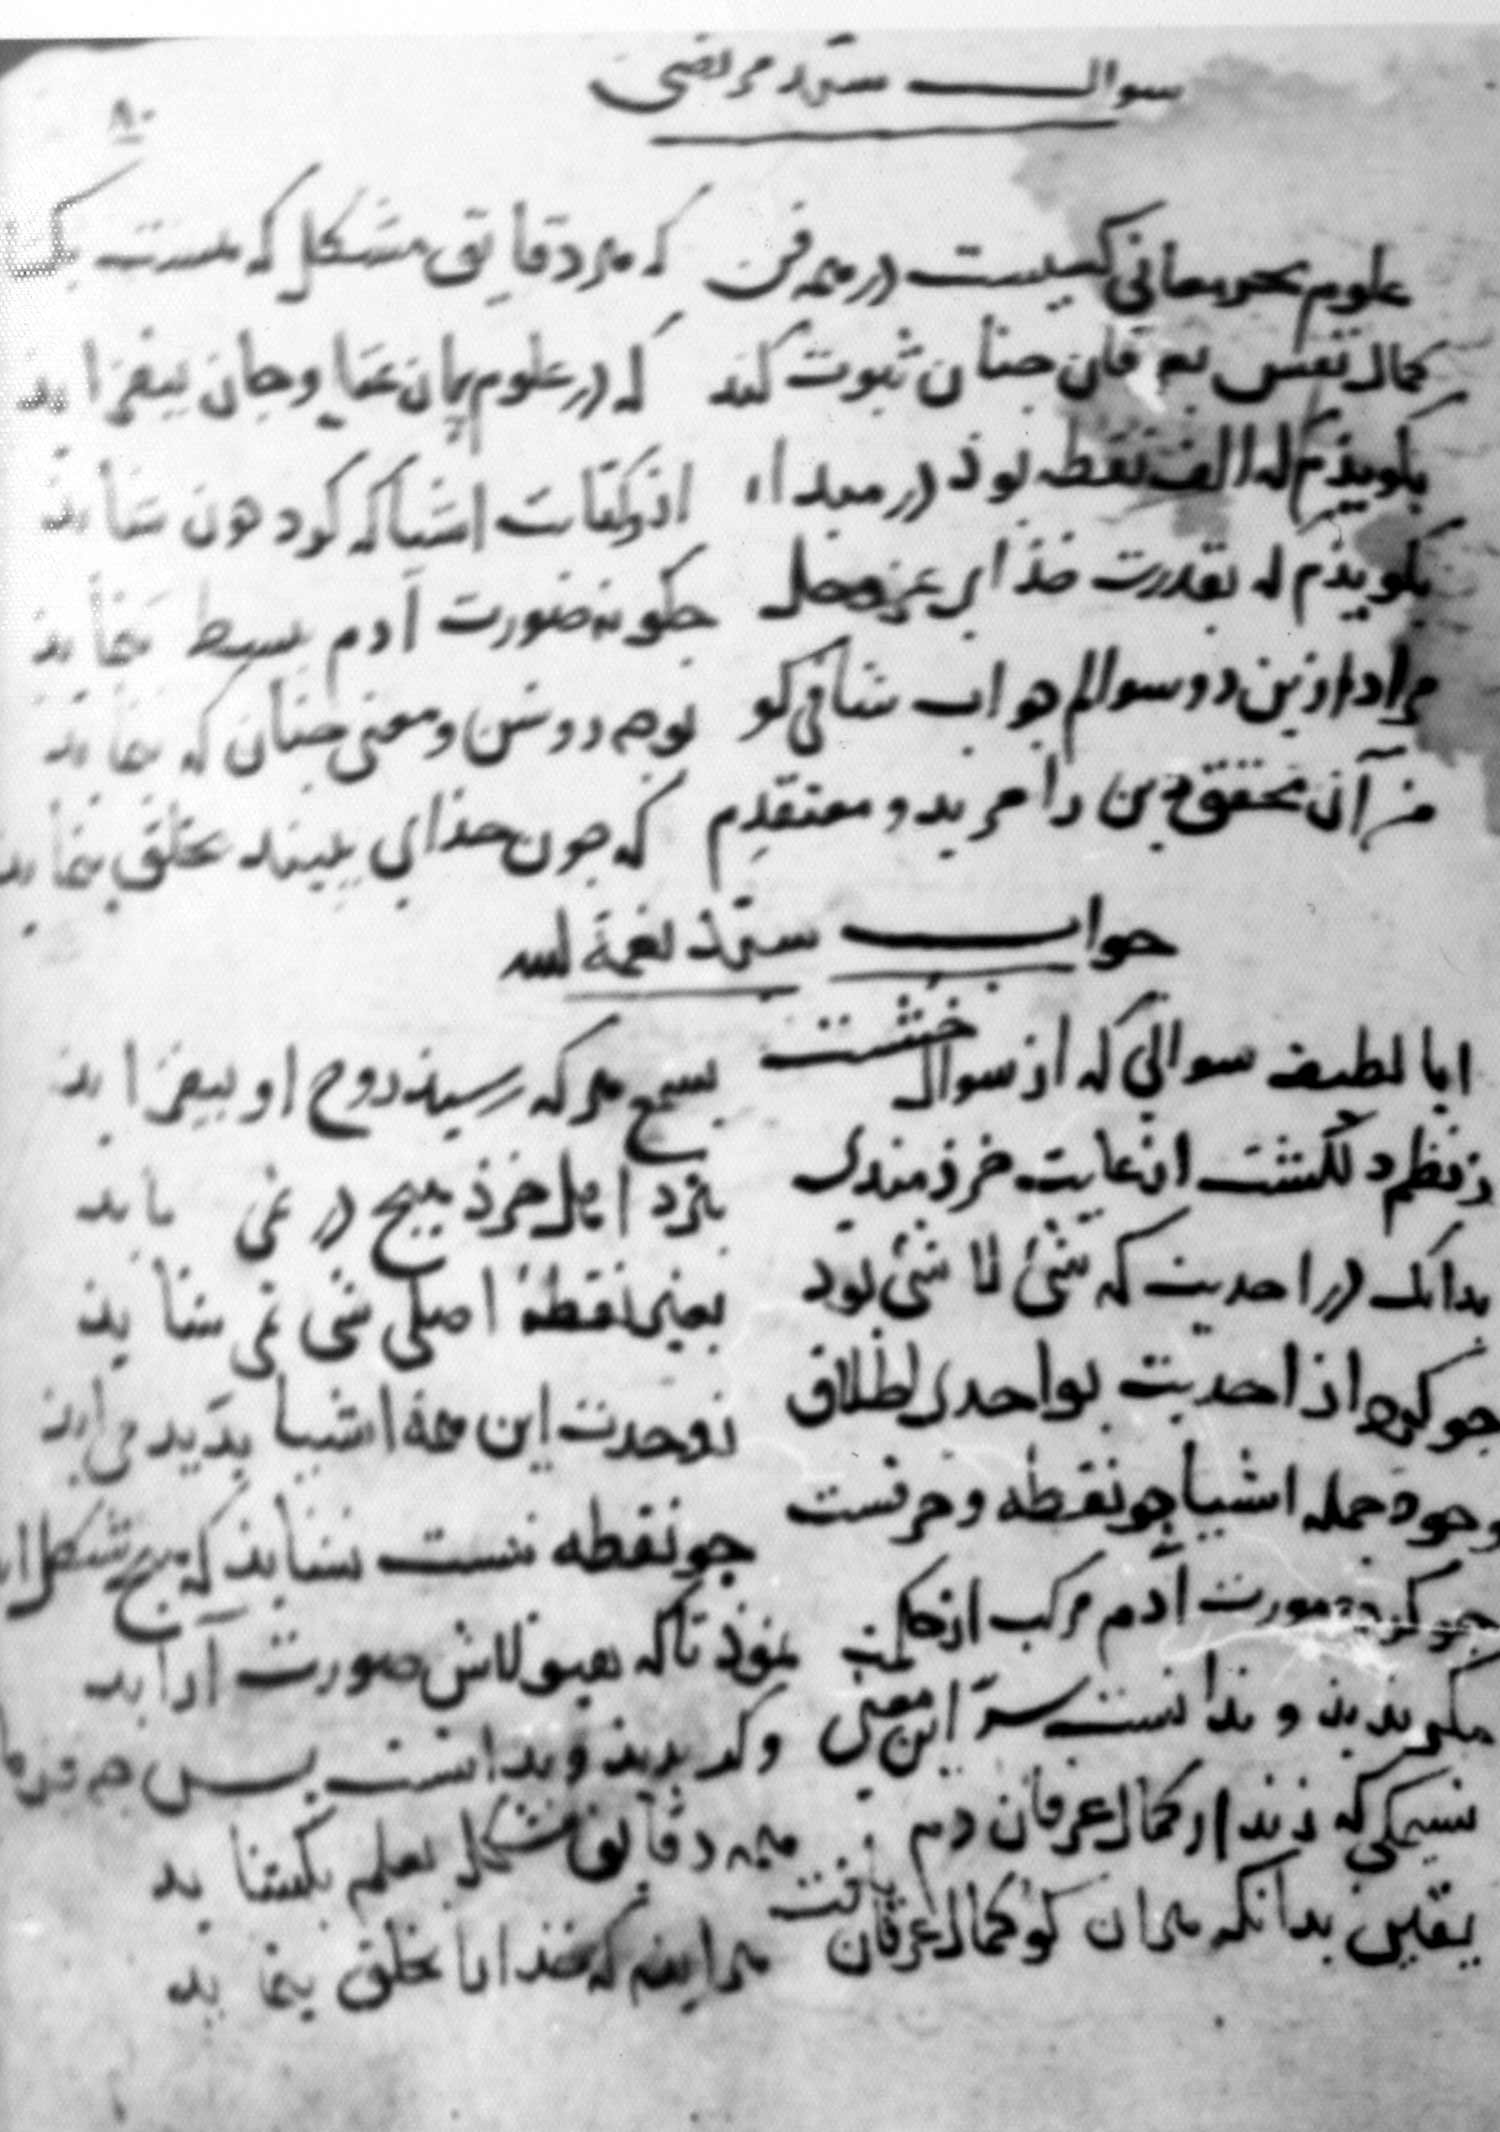 سوال سید مرتضی
۸۰
علوم بحر معانی کسیست در همه فن که هر دقایق مشکل که هست
کمال نفس بعرفان چنان ثبوت کند که در علوم بیان و جان بیفزاید
بگویدم که الف نقطه بوذ در مبداء از کاینات اشیا که کرد چون شاید
بگویذم که بقدرت خذای عز وجل چگونه صورت آدم بسیط بنماید
مراد ازین دو سوالم جواب شافی کو بوجه روشن و معنی چنان که بنماید
من آن محقق دین را مرید و معتقدم که چون خدای ببیند بخلق بنماید
جواب سید نعمة الله
ایا لطیف سوالی که از سوال خشت بسمع هر که رسید روح او بیفزاید
ز نظم دلکشت از غایت خرذمندی بنزد اهل خرذ هیچ در نمی یابد
بدانک در احدیت که شئ لا شئ بود بعین نقطه اصلی شی نمی شاید
چو کرد از احدیت بواحدی اطلاق ز وحدت این همه اشیا پدید می آرذ
وجود جمله اشیا چو نقطه و حرفست چو نقطه نیست نشاید که هیچ شکل
چو کرد صورت آدم مرکب از حکمت نموذ تا که هیولاش صورت آراید
هر که بدید و ندانست سر این معنی وگر بدید و بدانست پس
کسی که زند از کمال عرفان دم همه دقایق مشکل بعلم بگشاید
یقین بدانکه هر آن کو کمال عرفان یافت هر آینه که خذا را بخلق بنماید